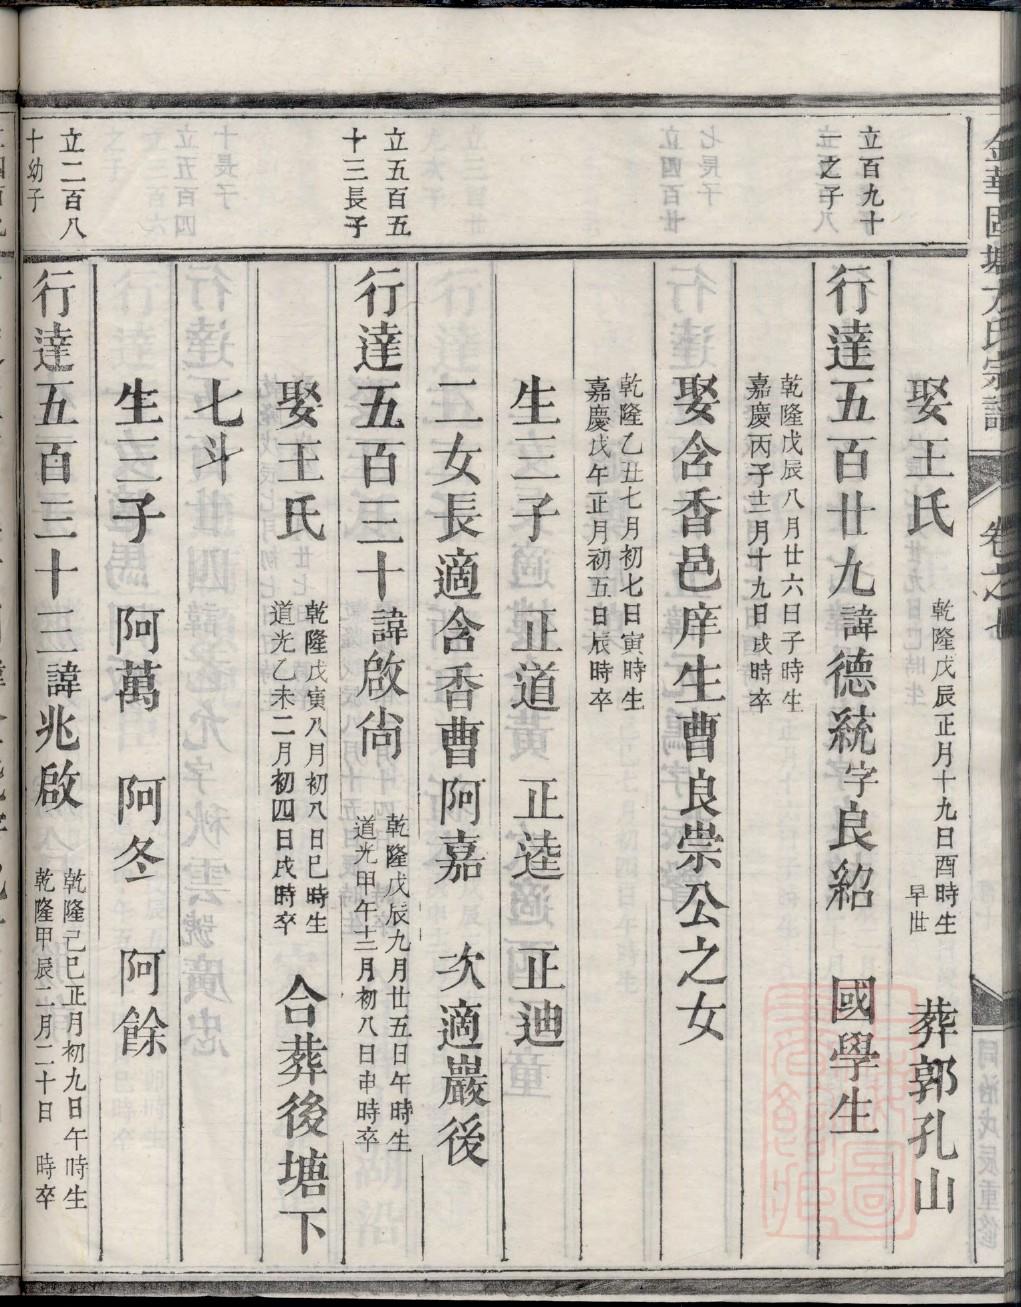 金華固塘方氏宗譜 卷之七 同治戊辰重修
娶王氏 乾隆戊辰正月十九日酉時生 早世 葬郭孔山
立百九十之子
行達五百廿九諱德統字良紹 國學生
乾隆戊辰八月廿六日子時生
嘉慶丙子十二月十九日戌時卒
娶含香邑庠生曹良崇公之女
乾隆乙丑七月初七日寅時生
嘉慶戊午正月初五日辰時卒
生三子 正道 正逵 正迪
二女長適含香曹阿嘉 次適巖後
立五百五十三長子
行達五百三十諱啟尙 乾隆戊辰九月廿五日午時生
道光甲午十二月初八日申時卒
娶王氏 乾隆戊寅八月初八日巳時生
道光乙未二月初四日戌時卒 合葬後塘下
七斗
生三子 阿萬 阿冬 阿餘
立二百八十幼子
行達五百三十二諱兆啟 乾隆己巳正月初九日午時生
乾隆甲辰二月二十日 時卒